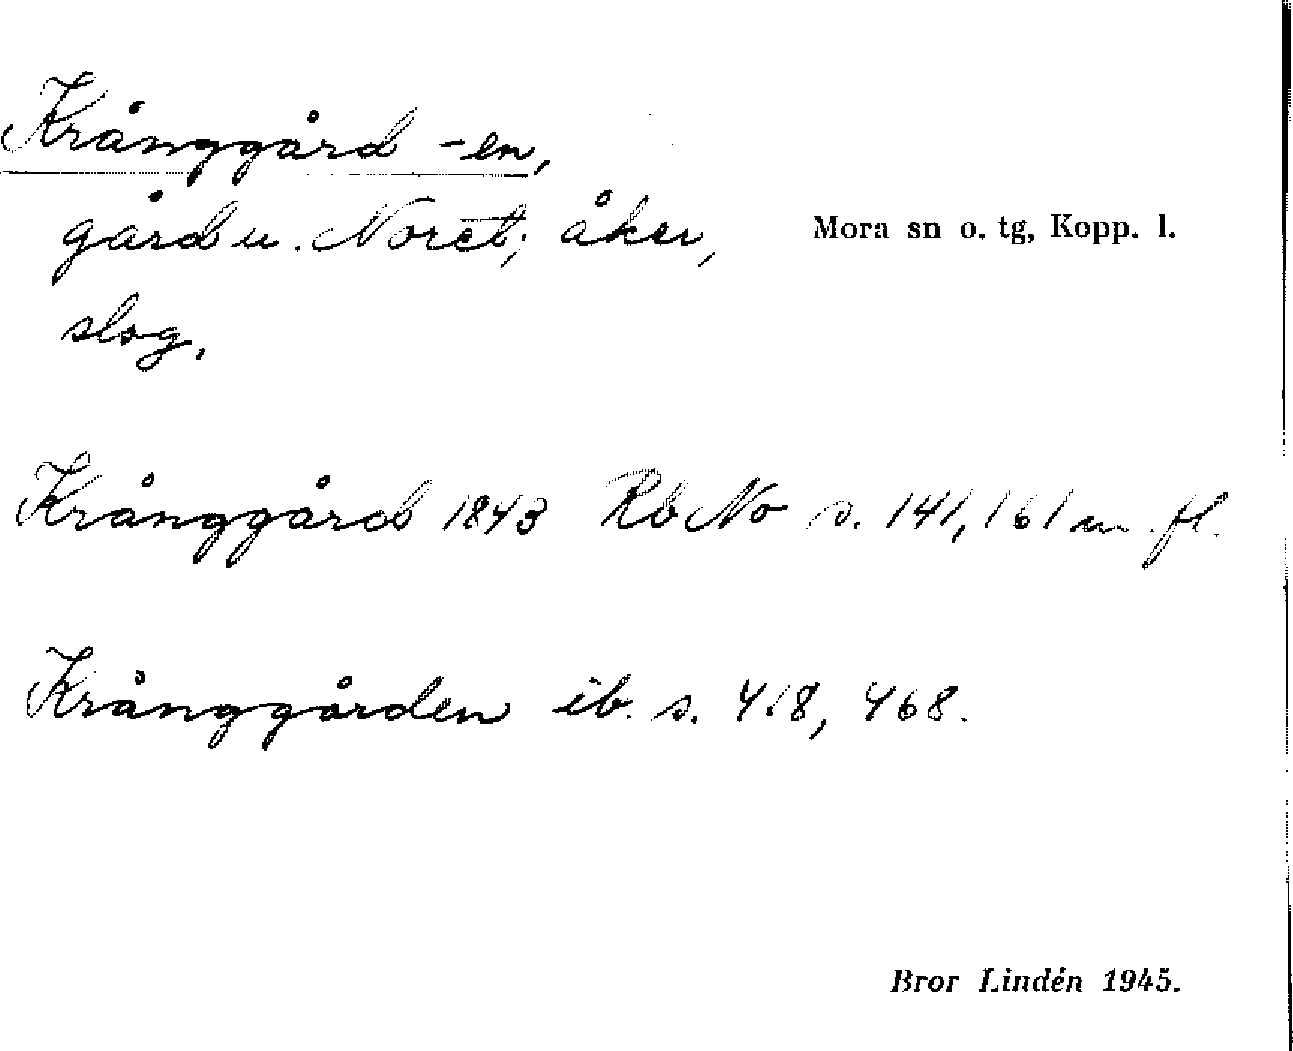 Krånggård -en,
gård u. Noret; åker,
slog.
Mora sn o. tg, Kopp. l.
Krånggård 1843 Rb No s. 141, 161 m. fl.
Krånggården ib. s. 418, 468.
Bror Lindén 1945.